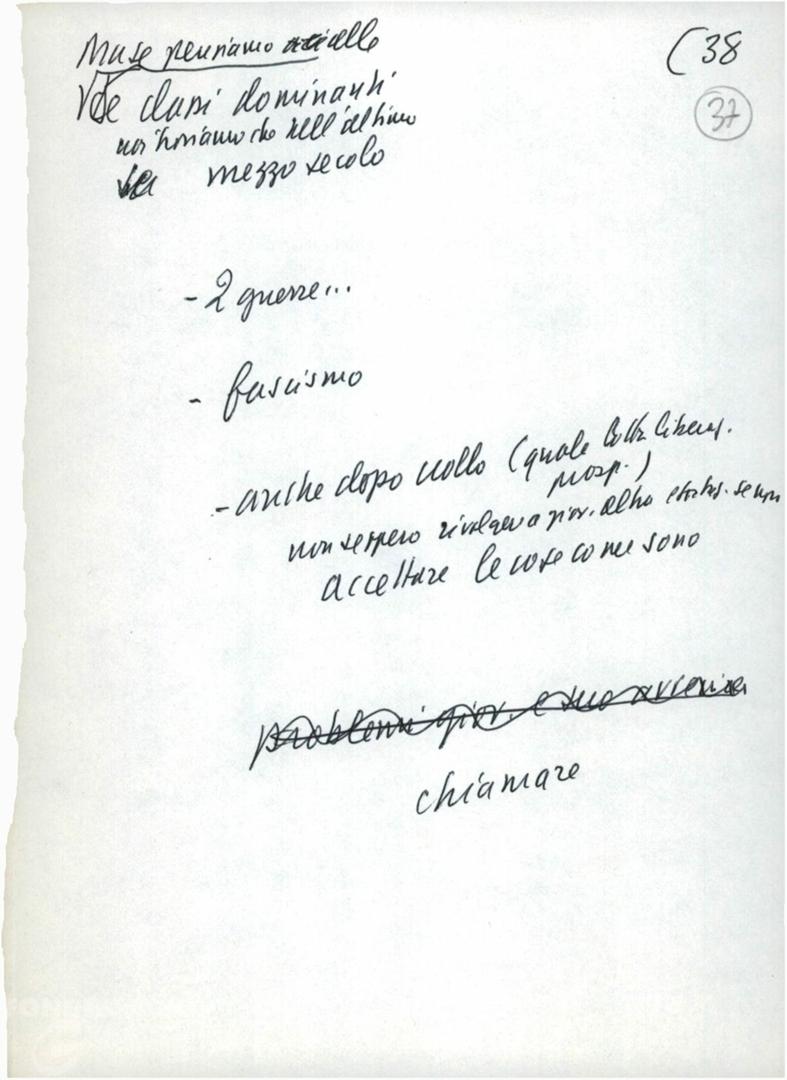 (38
37
Ma se pensiamo alle
classi dominanti
noi troviamo che nell'ultimo
mezzo secolo
- 2 guerre...
- fascismo
- anche dopo crollo (quale lotta liberaz.
prosp.)
non seppero rivolgere a giov. altra esortaz. se non
accettare le cose come sono
problemi giov. e suo avvenire
chiamare